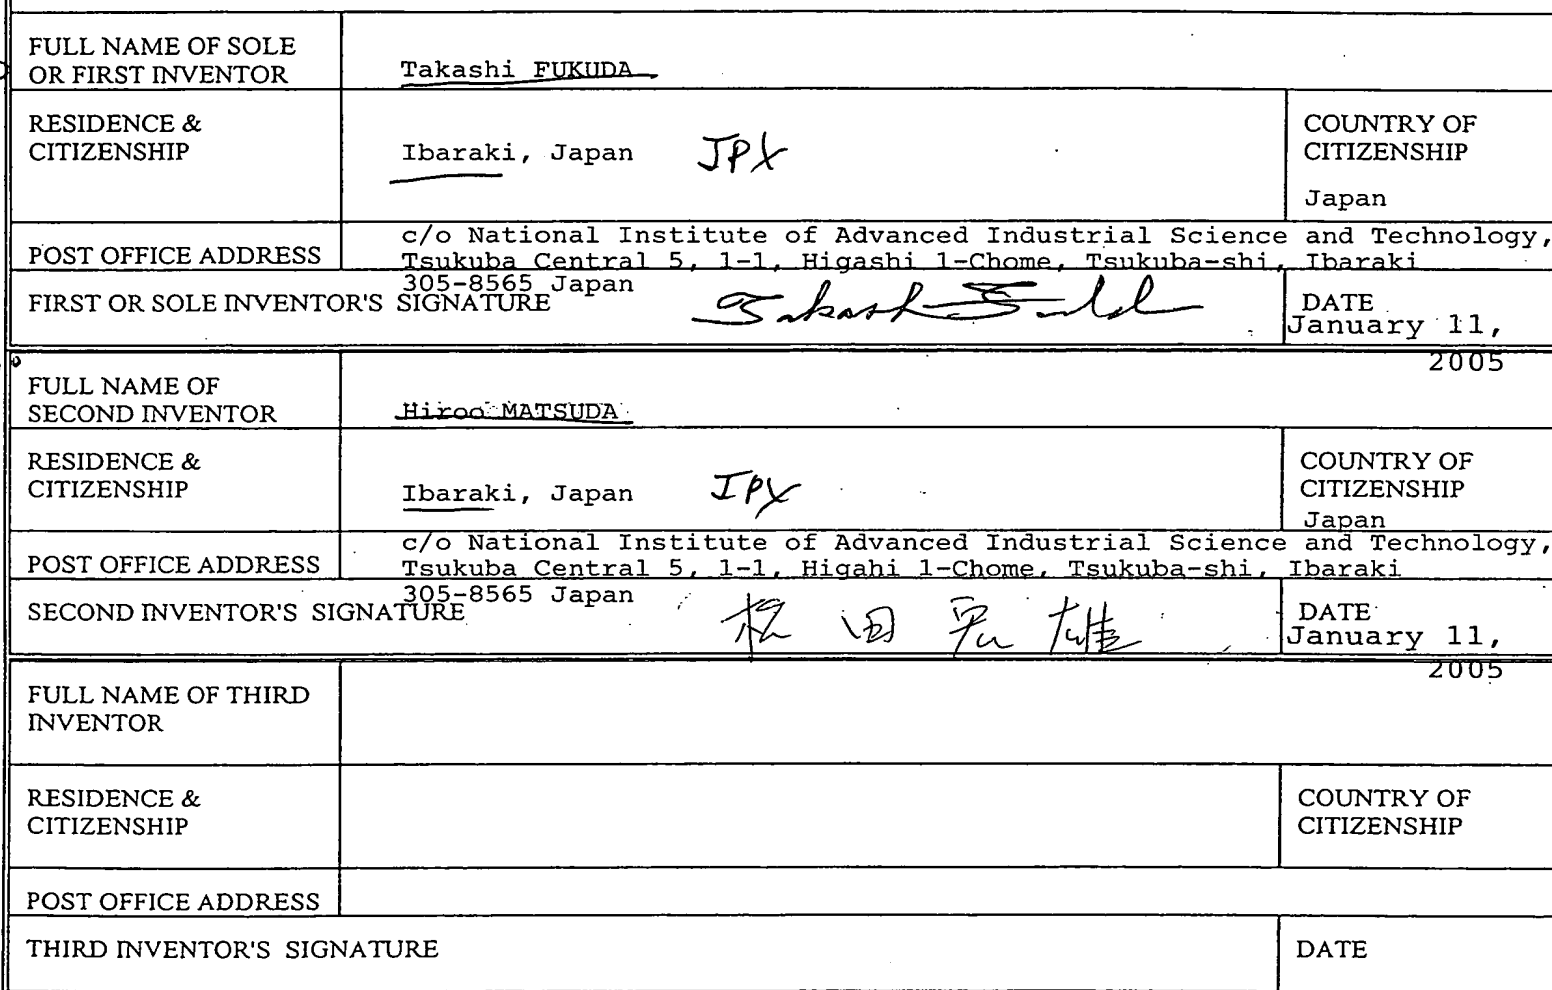 FULL NAME OF SOLE
OR FIRST INVENTOR
Takashi FUKUDA
RESIDENCE &
CITIZENSHIP
Ibaraki, Japan JPX
COUNTRY OF
CITIZENSHIP
Japan
POST OFFICE ADDRESS
c/o National Institute of Advanced Industrial Science and Technology,
Tsukuba Central 5, 1-1, Higashi 1-Chome, Tsukuba-shi, Ibaraki
305-8565 Japan
FIRST OR SOLE INVENTOR'S SIGNATURE
Takashi Fukuda
DATE
January 11,
2005
FULL NAME OF
SECOND INVENTOR
Hiroo MATSUDA
RESIDENCE &
CITIZENSHIP
Ibaraki, Japan JPX
COUNTRY OF
CITIZENSHIP
Japan
POST OFFICE ADDRESS
c/o National Institute of Advanced Industrial Science and Technology,
Tsukuba Central 5, 1-1, Higahi 1-Chome, Tsukuba-shi, Ibaraki
305-8565 Japan
SECOND INVENTOR'S SIGNATURE
松田宏雄
DATE
January 11,
2005
FULL NAME OF THIRD
INVENTOR
RESIDENCE &
CITIZENSHIP
COUNTRY OF
CITIZENSHIP
POST OFFICE ADDRESS
THIRD INVENTOR'S SIGNATURE
DATE